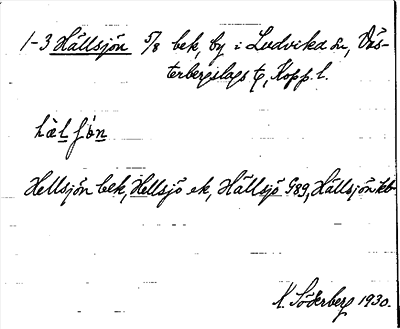 1-3 Hällsjön 5/8 bek, by i Ludvika sn, Väs-
terbergslags tg, Kopp. l.
hæl
Hellsjön bek, Hellsjö ek, Hällsjö G89, Hällsjön kb
N. Söderberg 1930.